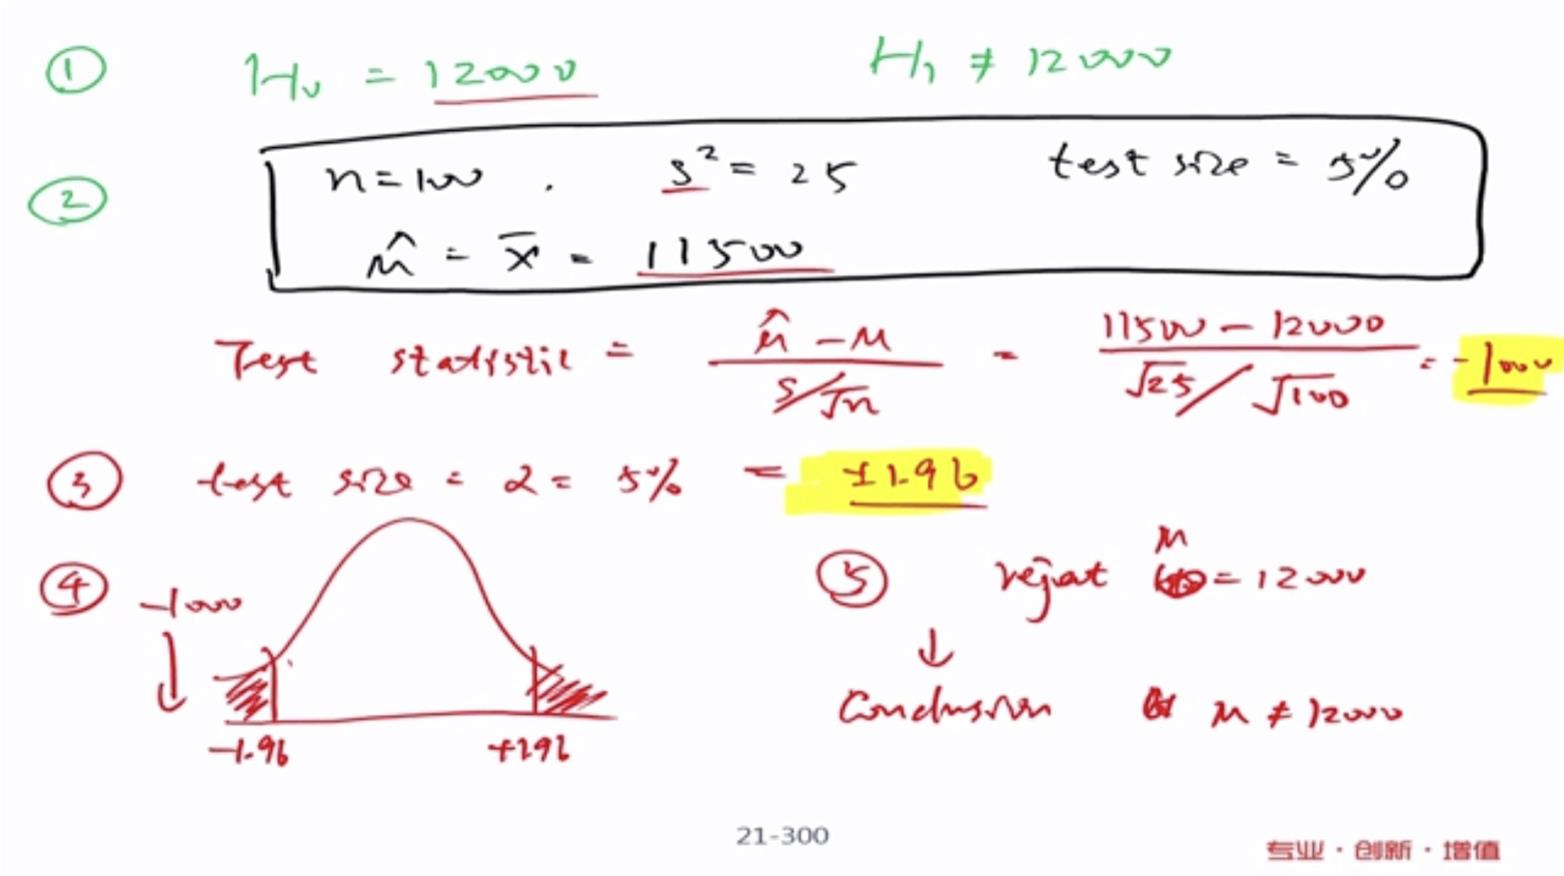 ① H₀ = 12000 H₁ ≠ 12000
② n=100 . s² = 25 test size = 5%
μ̂ = x̄ = 11500
Test statistic = (μ̂ - μ) / (s/√n) = (11500 - 12000) / (√25/√100) = -1000
③ test size = α = 5% = ±1.96
④ -1000 ↓
-1.96 +1.96
⑤ reject μ = 12000
↓
Conclusion μ ≠ 12000
21-300
专业·创新·增值